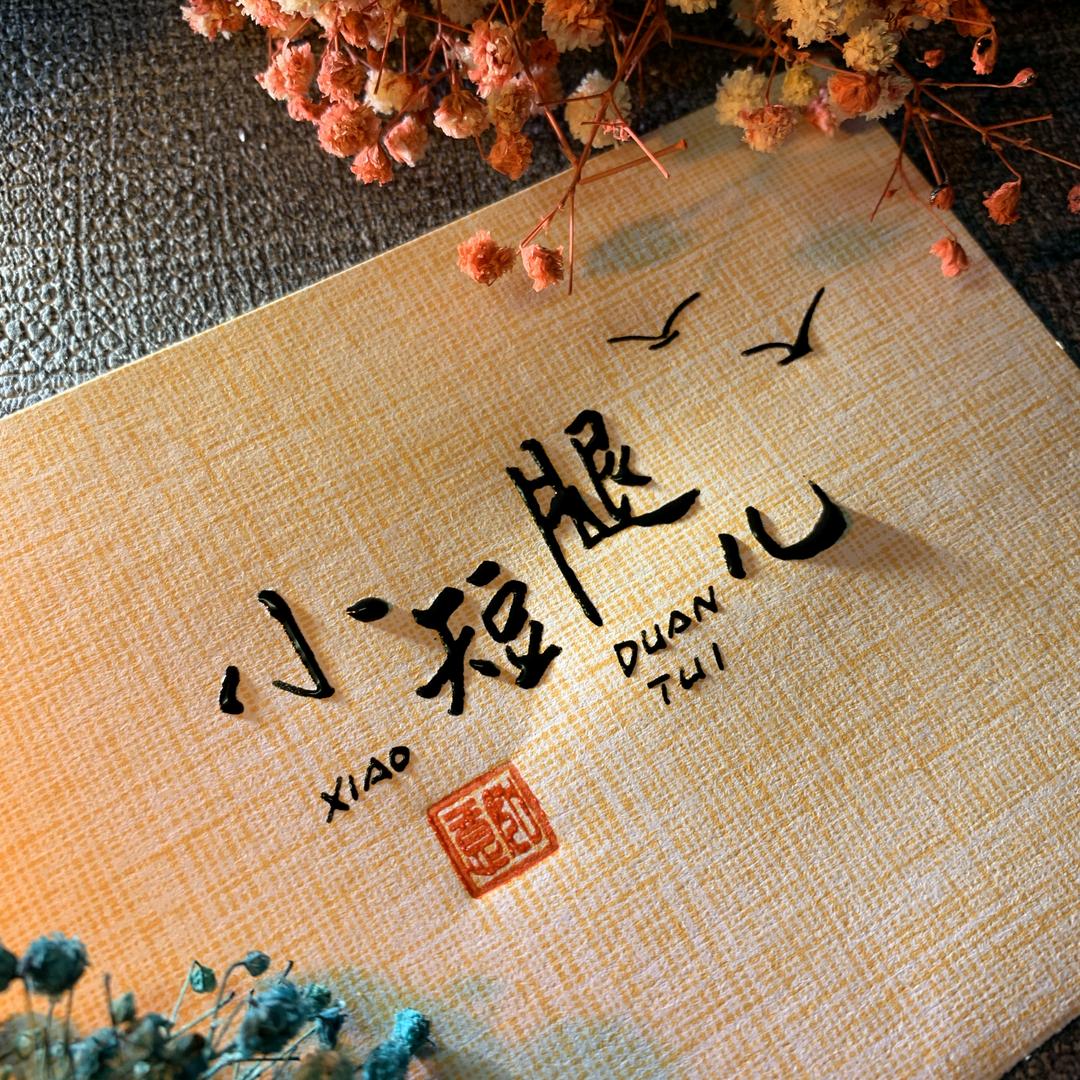 小短腿儿
XIAO
DUAN
TUI